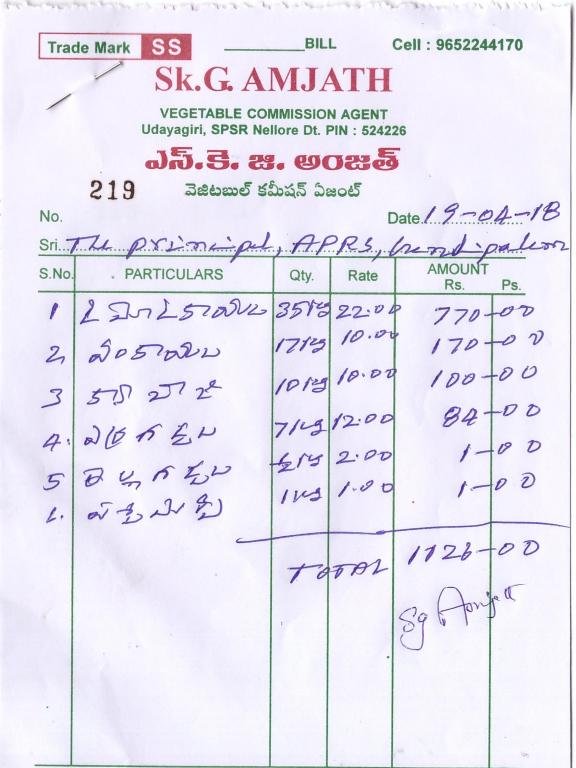 Trade Mark SS BILL Cell : 9652244170
Sk.G. AMJATH
VEGETABLE COMMISSION AGENT
Udayagiri, SPSR Nellore Dt. PIN : 524226
ఎస్.కె. జి. అంజత్
219 వెజిటబుల్ కమీషన్ ఏజంట్
No. Date 19-04-18
Sri. The principal, APRS,
S.No. PARTICULARS Qty. Rate AMOUNT
Rs. Ps.
1 35kg 22.00 770-00
2 వంకాయలు 17kg 10.00 170-00
3 10kg 10.00 100-00
4. ఎర్రగడ్డలు 7kg 12.00 84-00
5 తెల్లగడ్డలు 2.00 1-00
1kg 1.00 1-00
TOTAL 1126-00